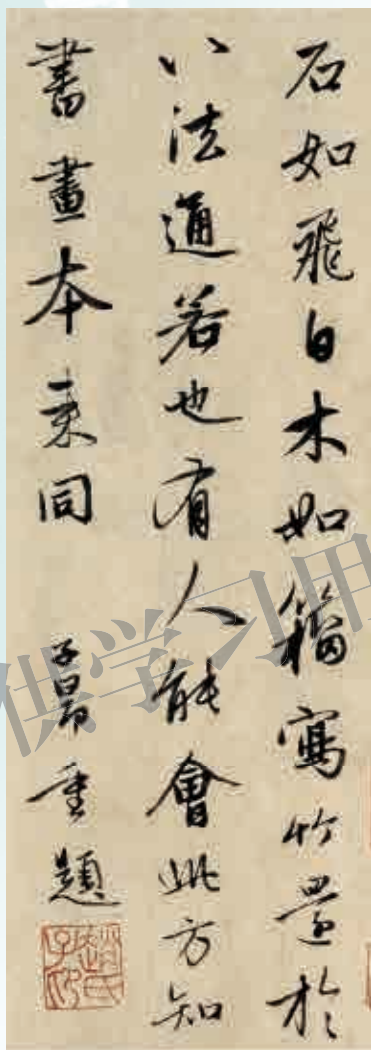 石如飛白木如籀寫竹還於
八法通若也有人能會此方知
書畫本來同
子昂重題
趙氏子印
佛学习用